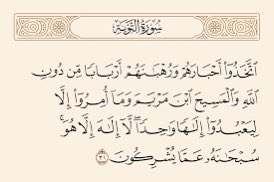 سُورَةُ التَّوْبَةِ
ٱتَّخَذُوٓا۟ أَحْبَارَهُمْ وَرُهْبَـٰنَهُمْ أَرْبَابًا مِّن دُونِ
ٱللَّهِ وَٱلْمَسِيحَ ٱبْنَ مَرْيَمَ وَمَآ أُمِرُوٓا۟ إِلَّا
لِيَعْبُدُوٓا۟ إِلَـٰهًا وَٰحِدًا ۖ لَّآ إِلَـٰهَ إِلَّا هُوَ ۚ
سُبْحَـٰنَهُۥ عَمَّا يُشْرِكُونَ ٣١